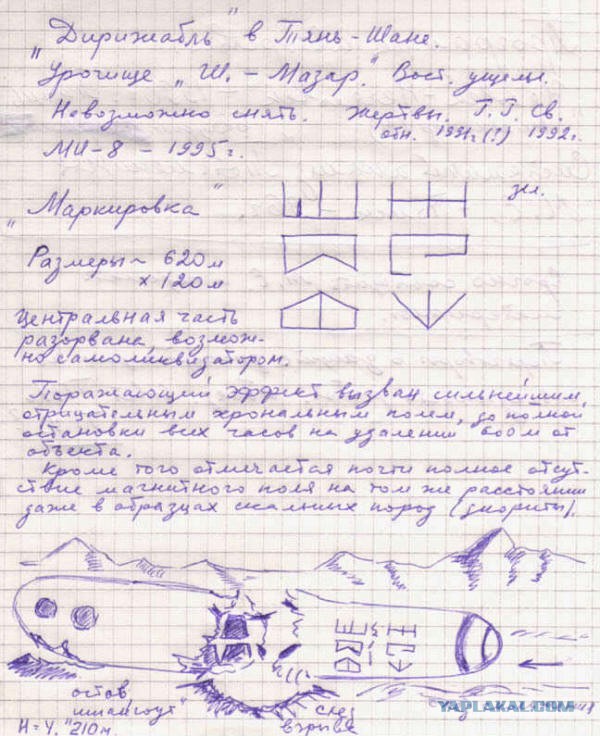 „Дирижабль" в Тянь-Шане.
Урочище „Ш.-Мазар." Вост. ущелье.
Невозможно снять. Жертвы. Г. Г. св.
отн. 1991г (?) 1992г.
МИ-8 - 1995г.
"Маркировка"
зел.
Размеры ~ 620м
х 120м
Центральная часть
разорвана, возмож-
но самоликвизатором.
Поражающий эффект вызван сильнейшим,
отрицательным хрональным полем, до полной
остановки всех часов на удалении 600м от
объекта.
Кроме того отмечается почти полное отсут-
ствие магнитного поля на том же расстоянии
даже в образцах скальных пород (диориты).
остов
шпангоут"
H=Ч. "210м.
след
взрыва
YAPLAKAL.COM